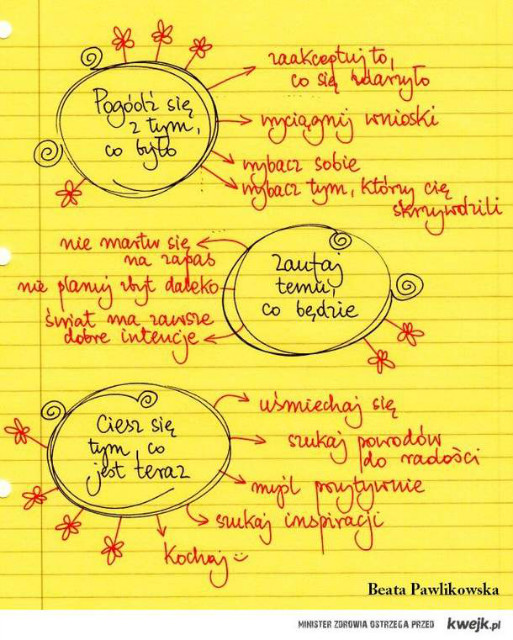 Pogódź się
z tym,
co było
zaakceptuj to,
co się zdarzyło
wyciągnij wnioski
wybacz sobie
wybacz tym, którzy cię
skrzywdzili
Zaufaj
temu,
co będzie
nie martw się
na zapas
nie planuj zbyt daleko
świat ma zawsze
dobre intencje
Ciesz się
tym, co
jest teraz
uśmiechaj się
szukaj powodów
do radości
myśl pozytywnie
szukaj inspiracji
Kochaj
Beata Pawlikowska
MINISTER ZDROWIA OSTRZEGA PRZED kwejk.pl